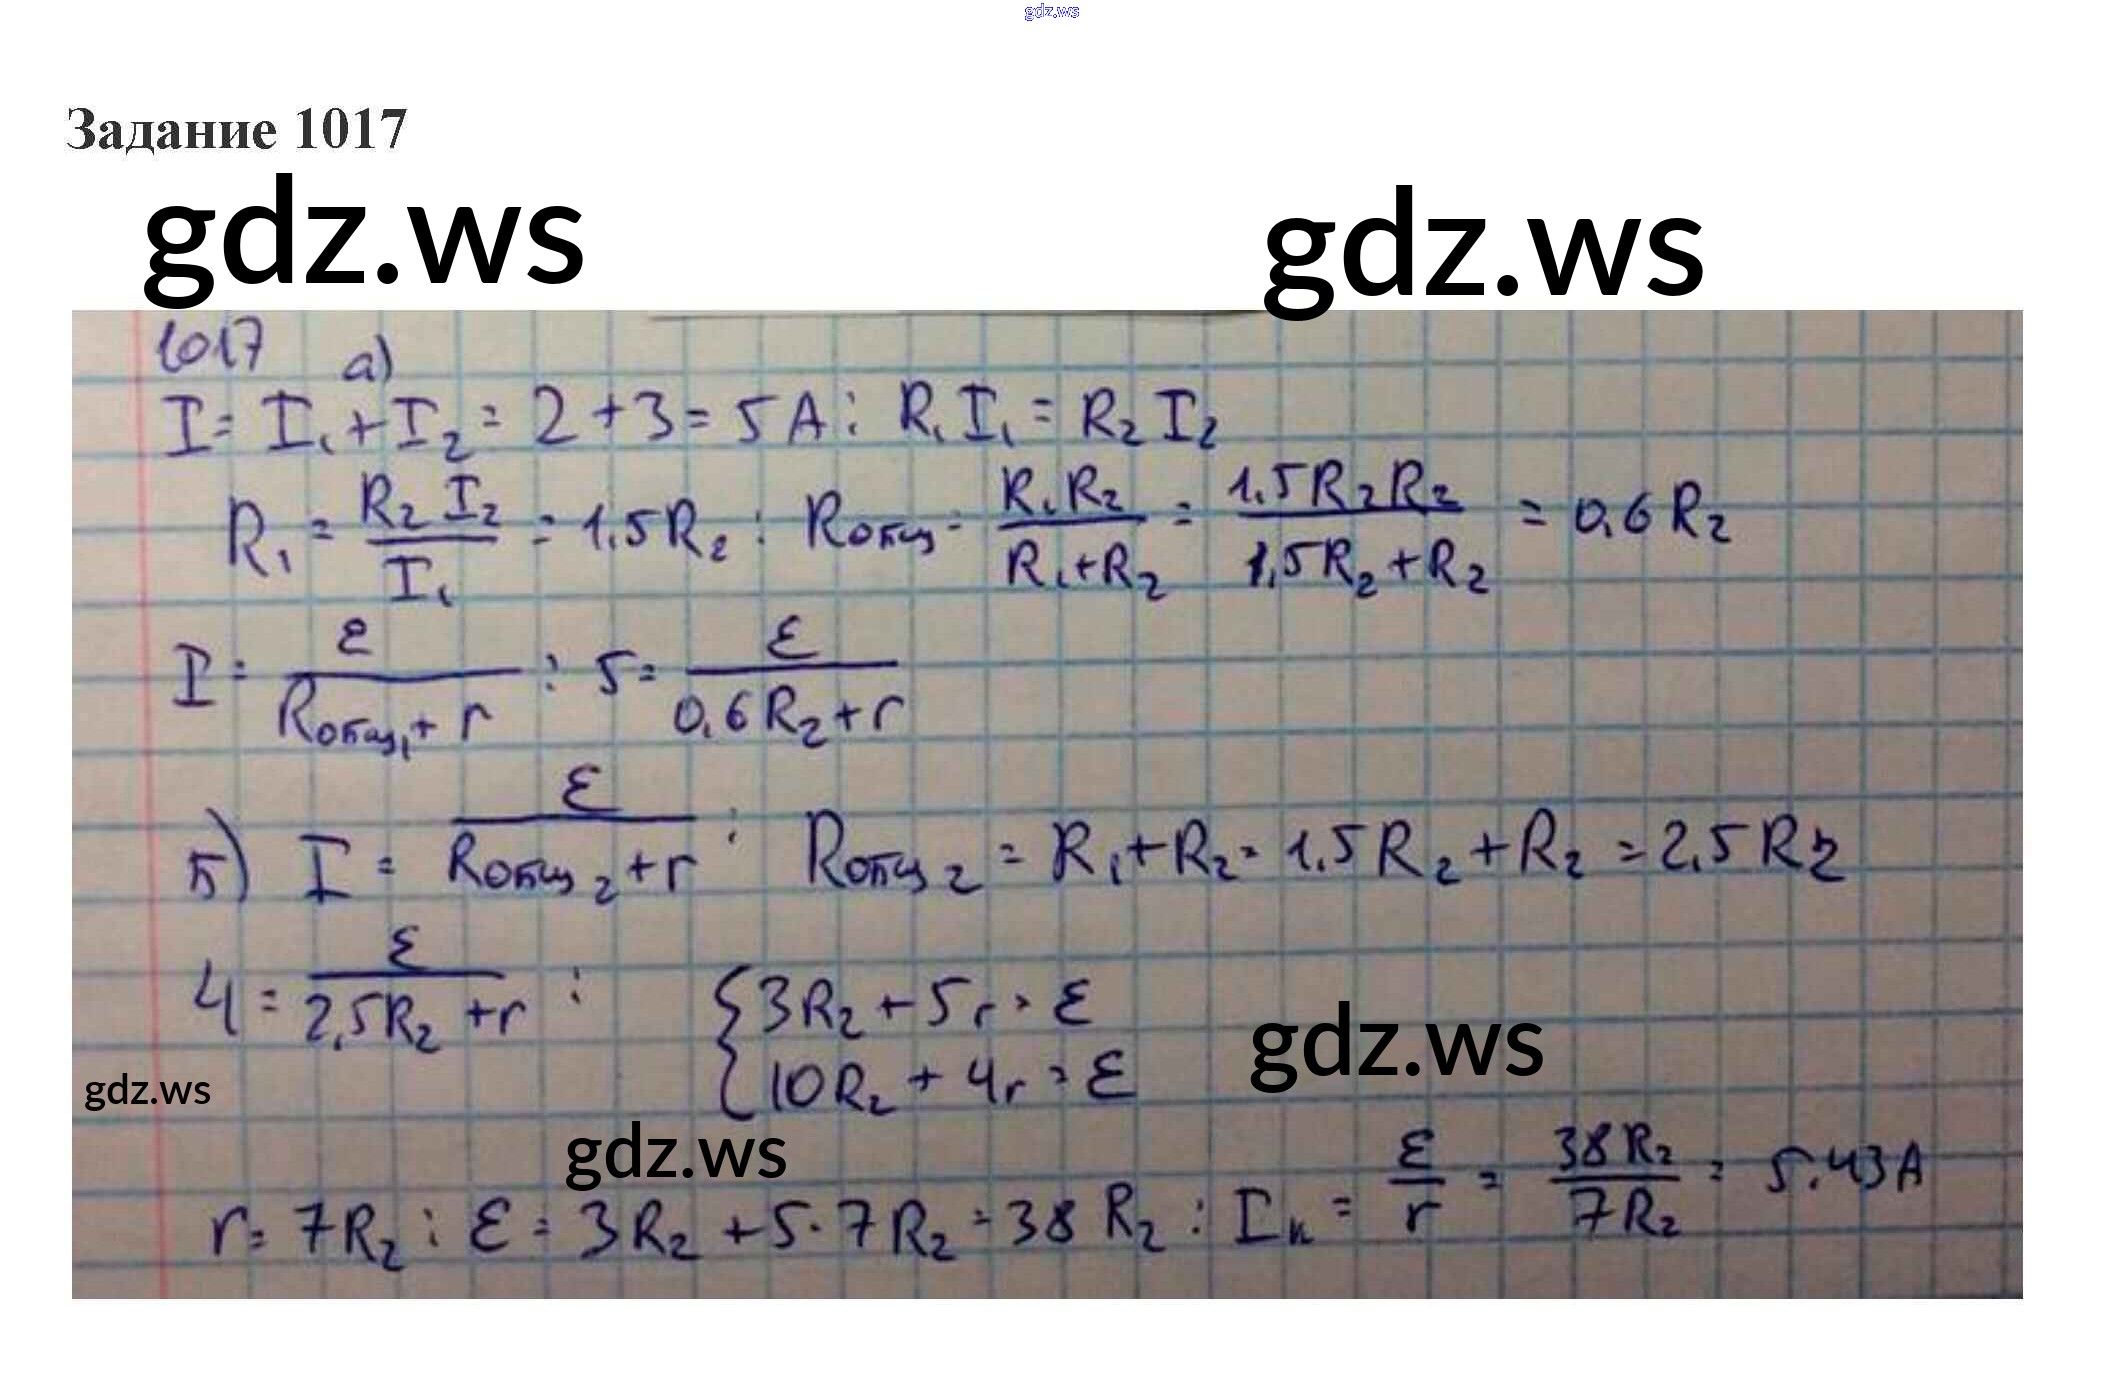 gdz.ws
Задание 1017
gdz.ws gdz.ws
1017 а)
I = I₁ + I₂ = 2 + 3 = 5 A ; R₁I₁ = R₂I₂
R₁ = R₂I₂ / I₁ = 1.5R₂ ; Rобщ = R₁R₂ / R₁+R₂ = 1.5R₂R₂ / 1,5R₂+R₂ = 0.6R₂
I = ε / Rобщ₁ + r ; 5 = ε / 0,6R₂ + r
б) I = ε / Rобщ₂ + r ; Rобщ₂ = R₁ + R₂ = 1.5R₂ + R₂ = 2.5R₂
4 = ε / 2,5R₂ + r ; { 3R₂ + 5r = ε
10R₂ + 4r = ε
gdz.ws
gdz.ws
gdz.ws
r = 7R₂ ; ε = 3R₂ + 5·7R₂ = 38R₂ ; Iк = ε / r = 38R₂ / 7R₂ = 5.43A